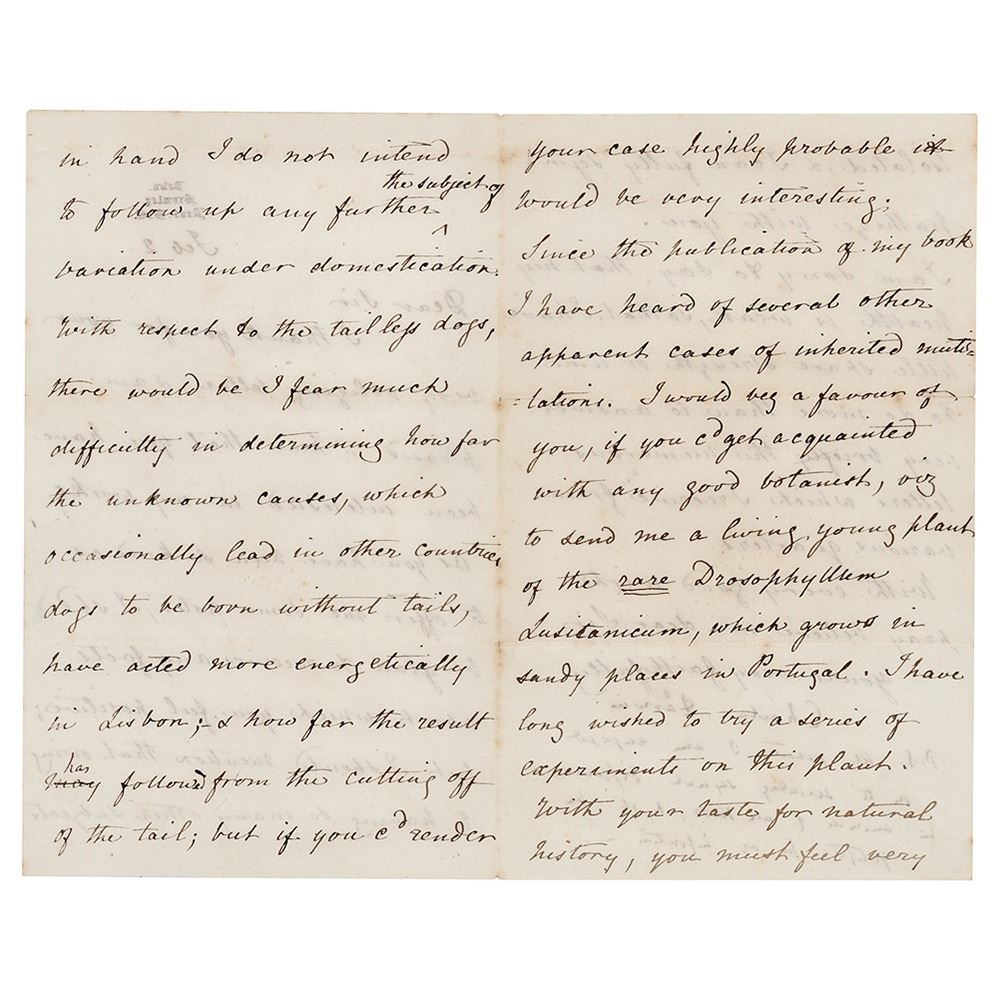 in hand I do not intend
the subject of
to follow up any further ^
variation under domestication.
With respect to the tailless dogs,
there would be I fear much
difficulty in determining how far
the unknown causes, which
occasionally lead in other countries
dogs to be born without tails,
have acted more energetically
in Lisbon; & how far the result
has
may followed from the cutting off
of the tail; but if you cd render
your case highly probable it
would be very interesting.
Since the publication of my book
I have heard of several other
apparent cases of inherited muti=
=lations. I would beg a favour of
you, if you cd get acquainted
with any good botanist, viz
to send me a living, young plant
of the rare Drosophyllum
Lusitanicum, which grows in
sandy places in Portugal. I have
long wished to try a series of
experiments on this plant.
With your taste for natural
history, you must feel very